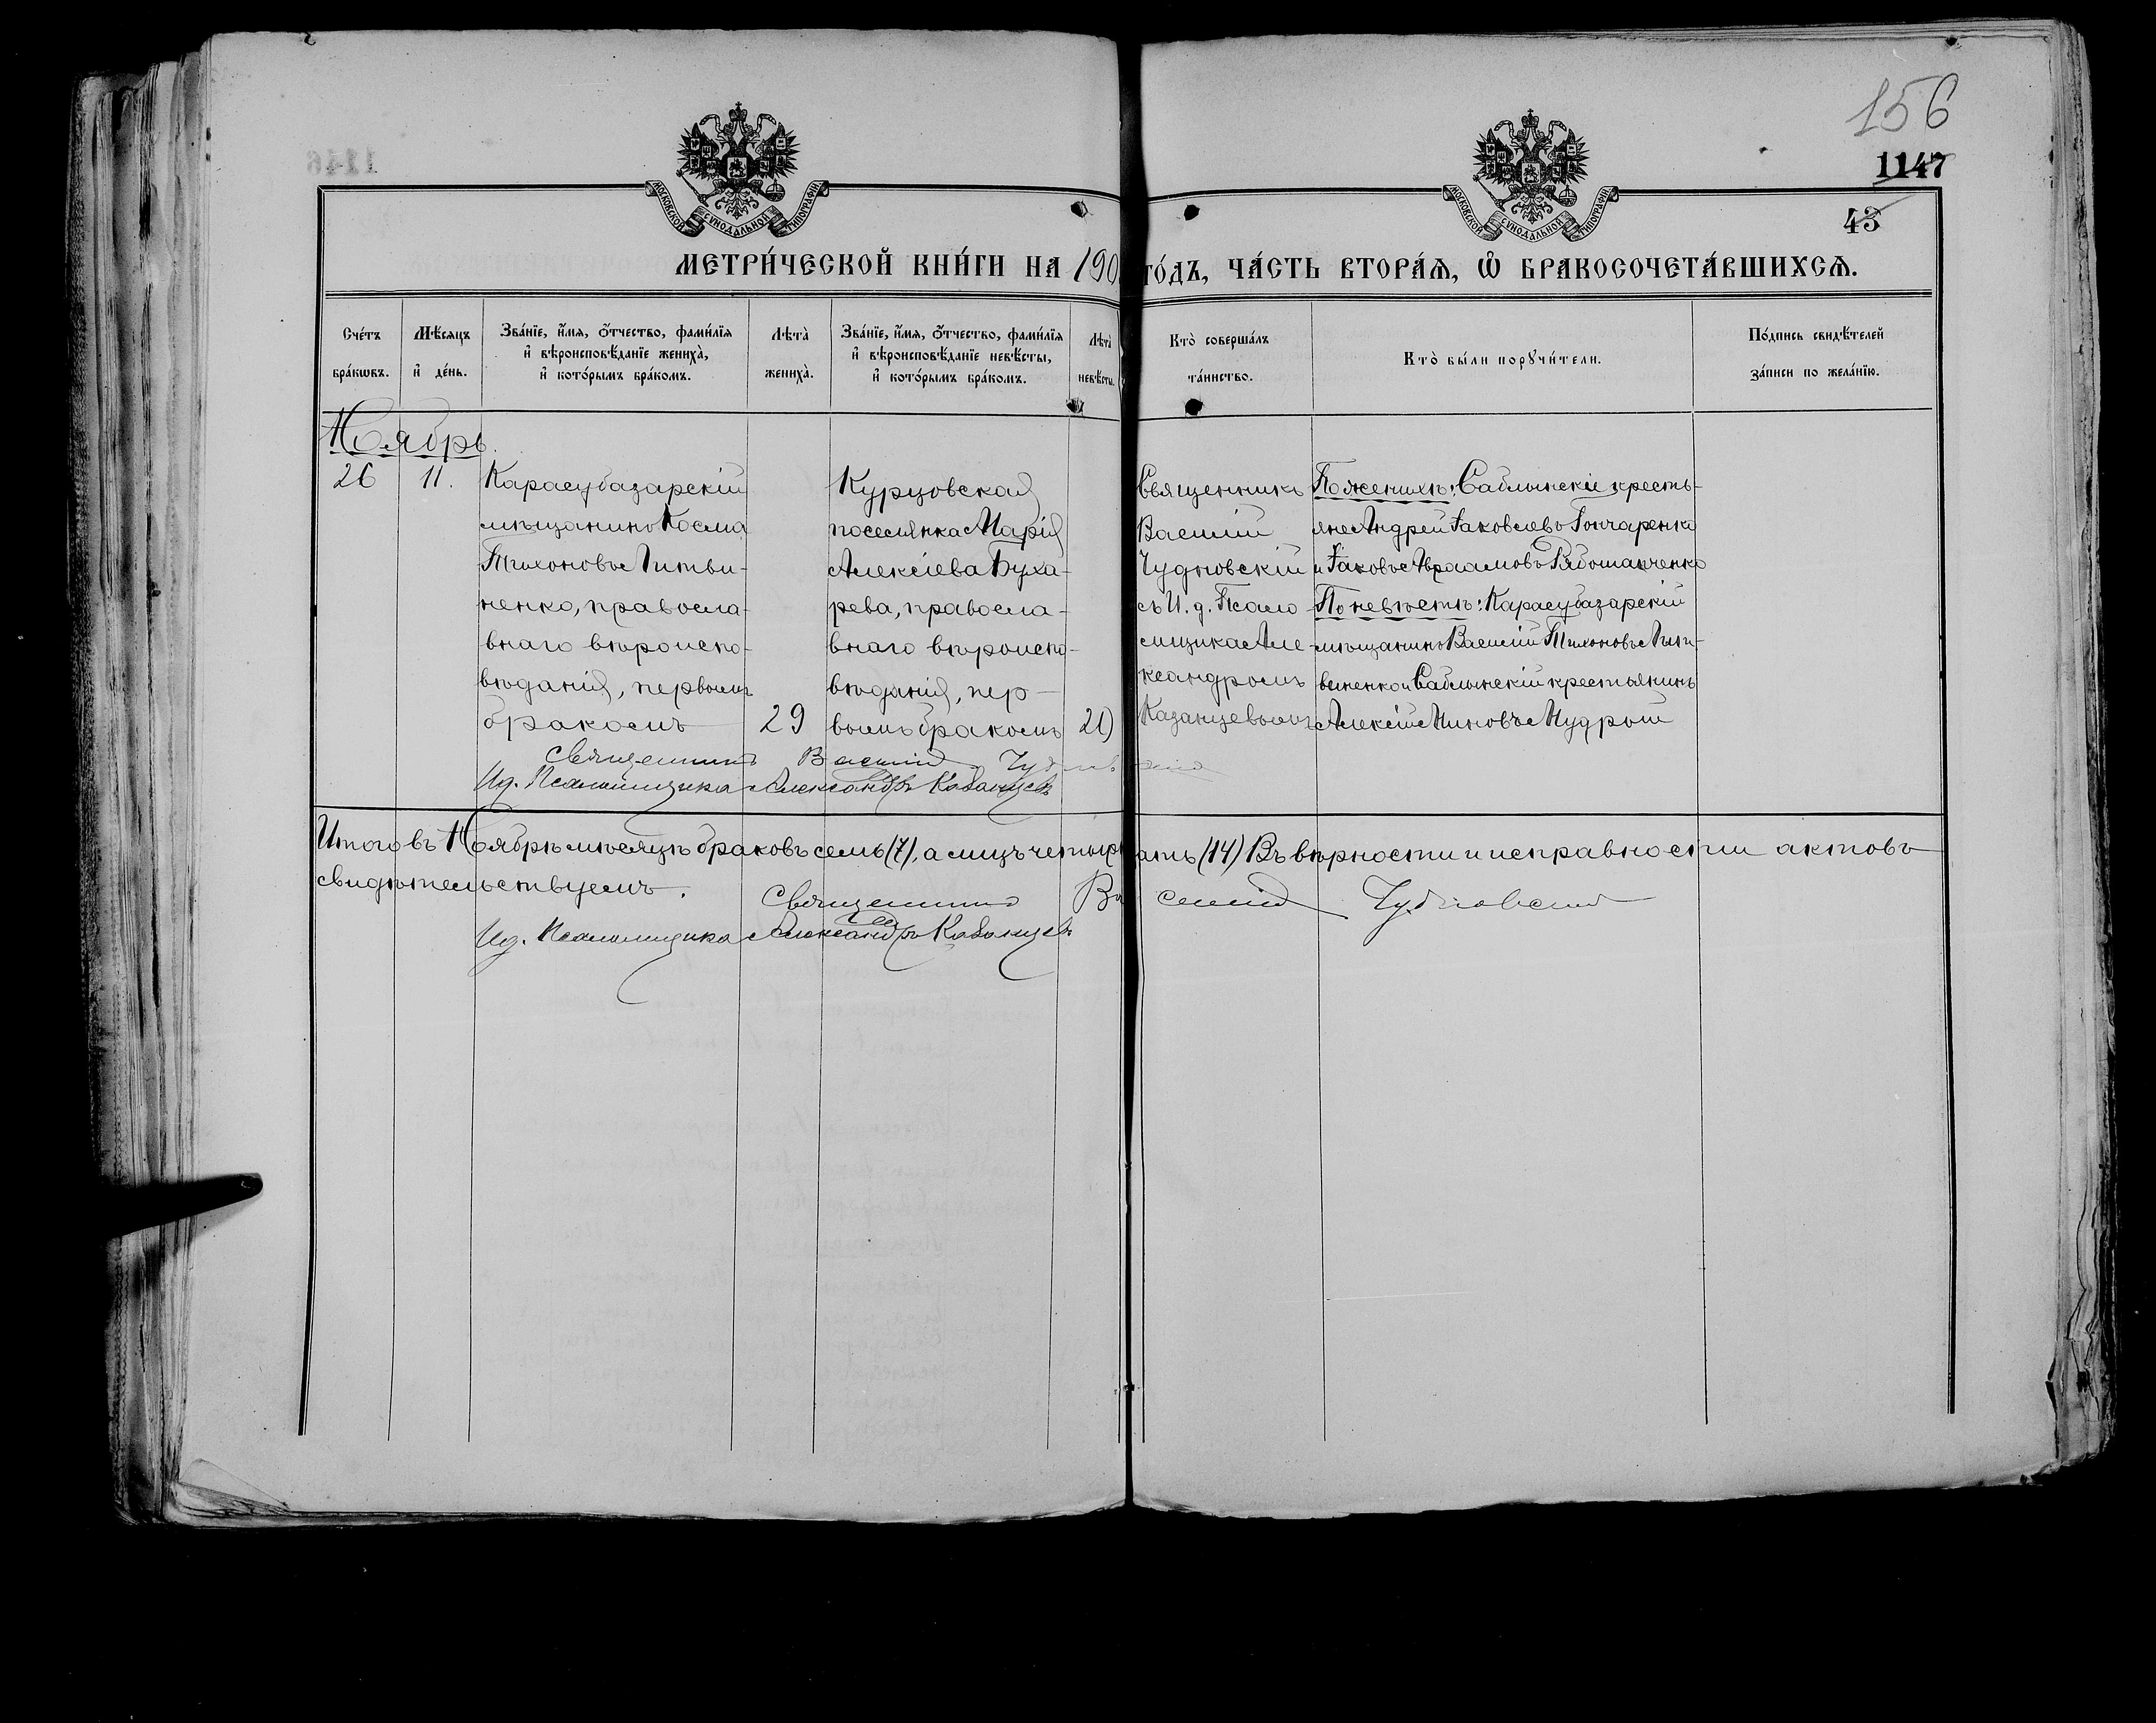 156
1147
43
МОСКОВСКОЙ СѴНОДАЛЬНОЙ ТИПОГРАФІИ
МОСКОВСКОЙ СѴНОДАЛЬНОЙ ТИПОГРАФІИ
МЕТРИ́ЧЕСКОЙ КНИ́ГИ НА 190
ГО́ДЪ, ЧА́СТЬ ВТОРА́Ѧ, Ѽ БРАКОСОЧЕТА́ВШИХСѦ.
Сче́тъ бра́кѡвъ.
Мѣ́сяцъ и҆ де́нь.
Зва́нїе, и҆́мя, ѻ҆́тчество, фами́лїя
и҆ вѣроисповѣ́данїе жениха̀,
и҆ кото́рымъ бра́комъ.
Лѣта̀ жениха̀.
Зва́нїе, и҆́мя, ѻ҆́тчество, фами́лїя
и҆ вѣроисповѣ́данїе невѣ́сты,
и҆ кото́рымъ бра́комъ.
Лѣта̀ невѣ́сты.
Кто̀ соверша́лъ
та́инство.
Кто̀ бы́ли порꙋчи́тели.
По́дпись свидѣ́телей
за́писи по жела́нїю.
Ноябрь.
26
11.
Карасубазарскій
мѣщанинъ Косма
Тихоновъ Литви-
ненко, правосла-
внаго вѣроиспо-
вѣданія, первымъ
бракомъ
29
Курцовская
поселянка Марія
Алексіева Буха-
рева, правосла-
внаго вѣроиспо-
вѣданія, пер-
вымъ бракомъ
21
Священникъ
Василій
Чудновскій
съ И. д. Псало
мщика Але-
ксандромъ
Казанцевымъ
По женихѣ: Саблынскіе кресть-
яне Андрей Іаковлевъ Гончаренко
и Іаковъ Авраамовъ
По невѣстѣ: Карасубазарскій
мѣщанинъ Василій Тихоновъ Лит-
виненко и Саблынскій крестьянинъ
Алексій Миновъ Мудрый
Священникъ Василій Чудновскій
Ид. Псаломщика Александръ Казанцевъ
Итого въ Ноябрѣ мѣсяцѣ браковъ семь (7), а лицъ четырн
ать (14) Въ вѣрности и исправности актовъ
свидѣтельствуемъ.
Священникъ Василій Чудновскій
Ид. Псаломщика Александръ Казанцевъ